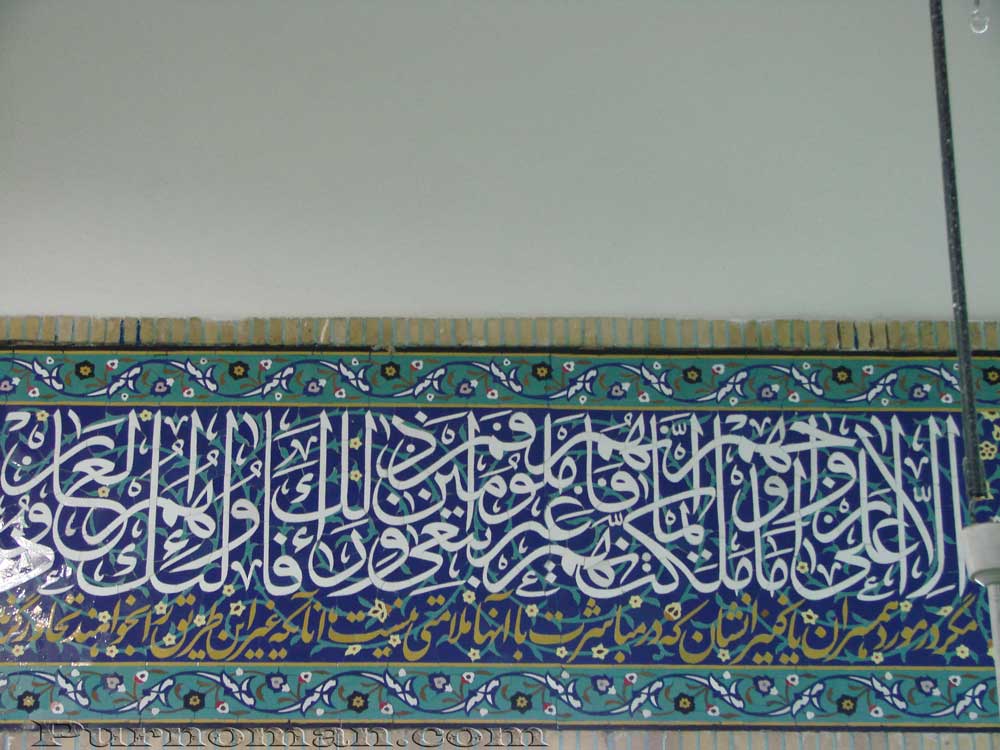 إِلَّا عَلَىٰ أَزْوَاجِهِمْ أَوْ مَا مَلَكَتْ أَيْمَانُهُمْ فَإِنَّهُمْ غَيْرُ مَلُومِينَ فَمَنِ ابْتَغَىٰ وَرَاءَ ذَٰلِكَ فَأُولَٰئِكَ هُمُ الْعَادُونَ
مگر در مورد همسران یا کنیزانشان که در مباشرت با آنها ملامتی نیست آنانکه غیر این طریق را بخواهند
Purnoman.com